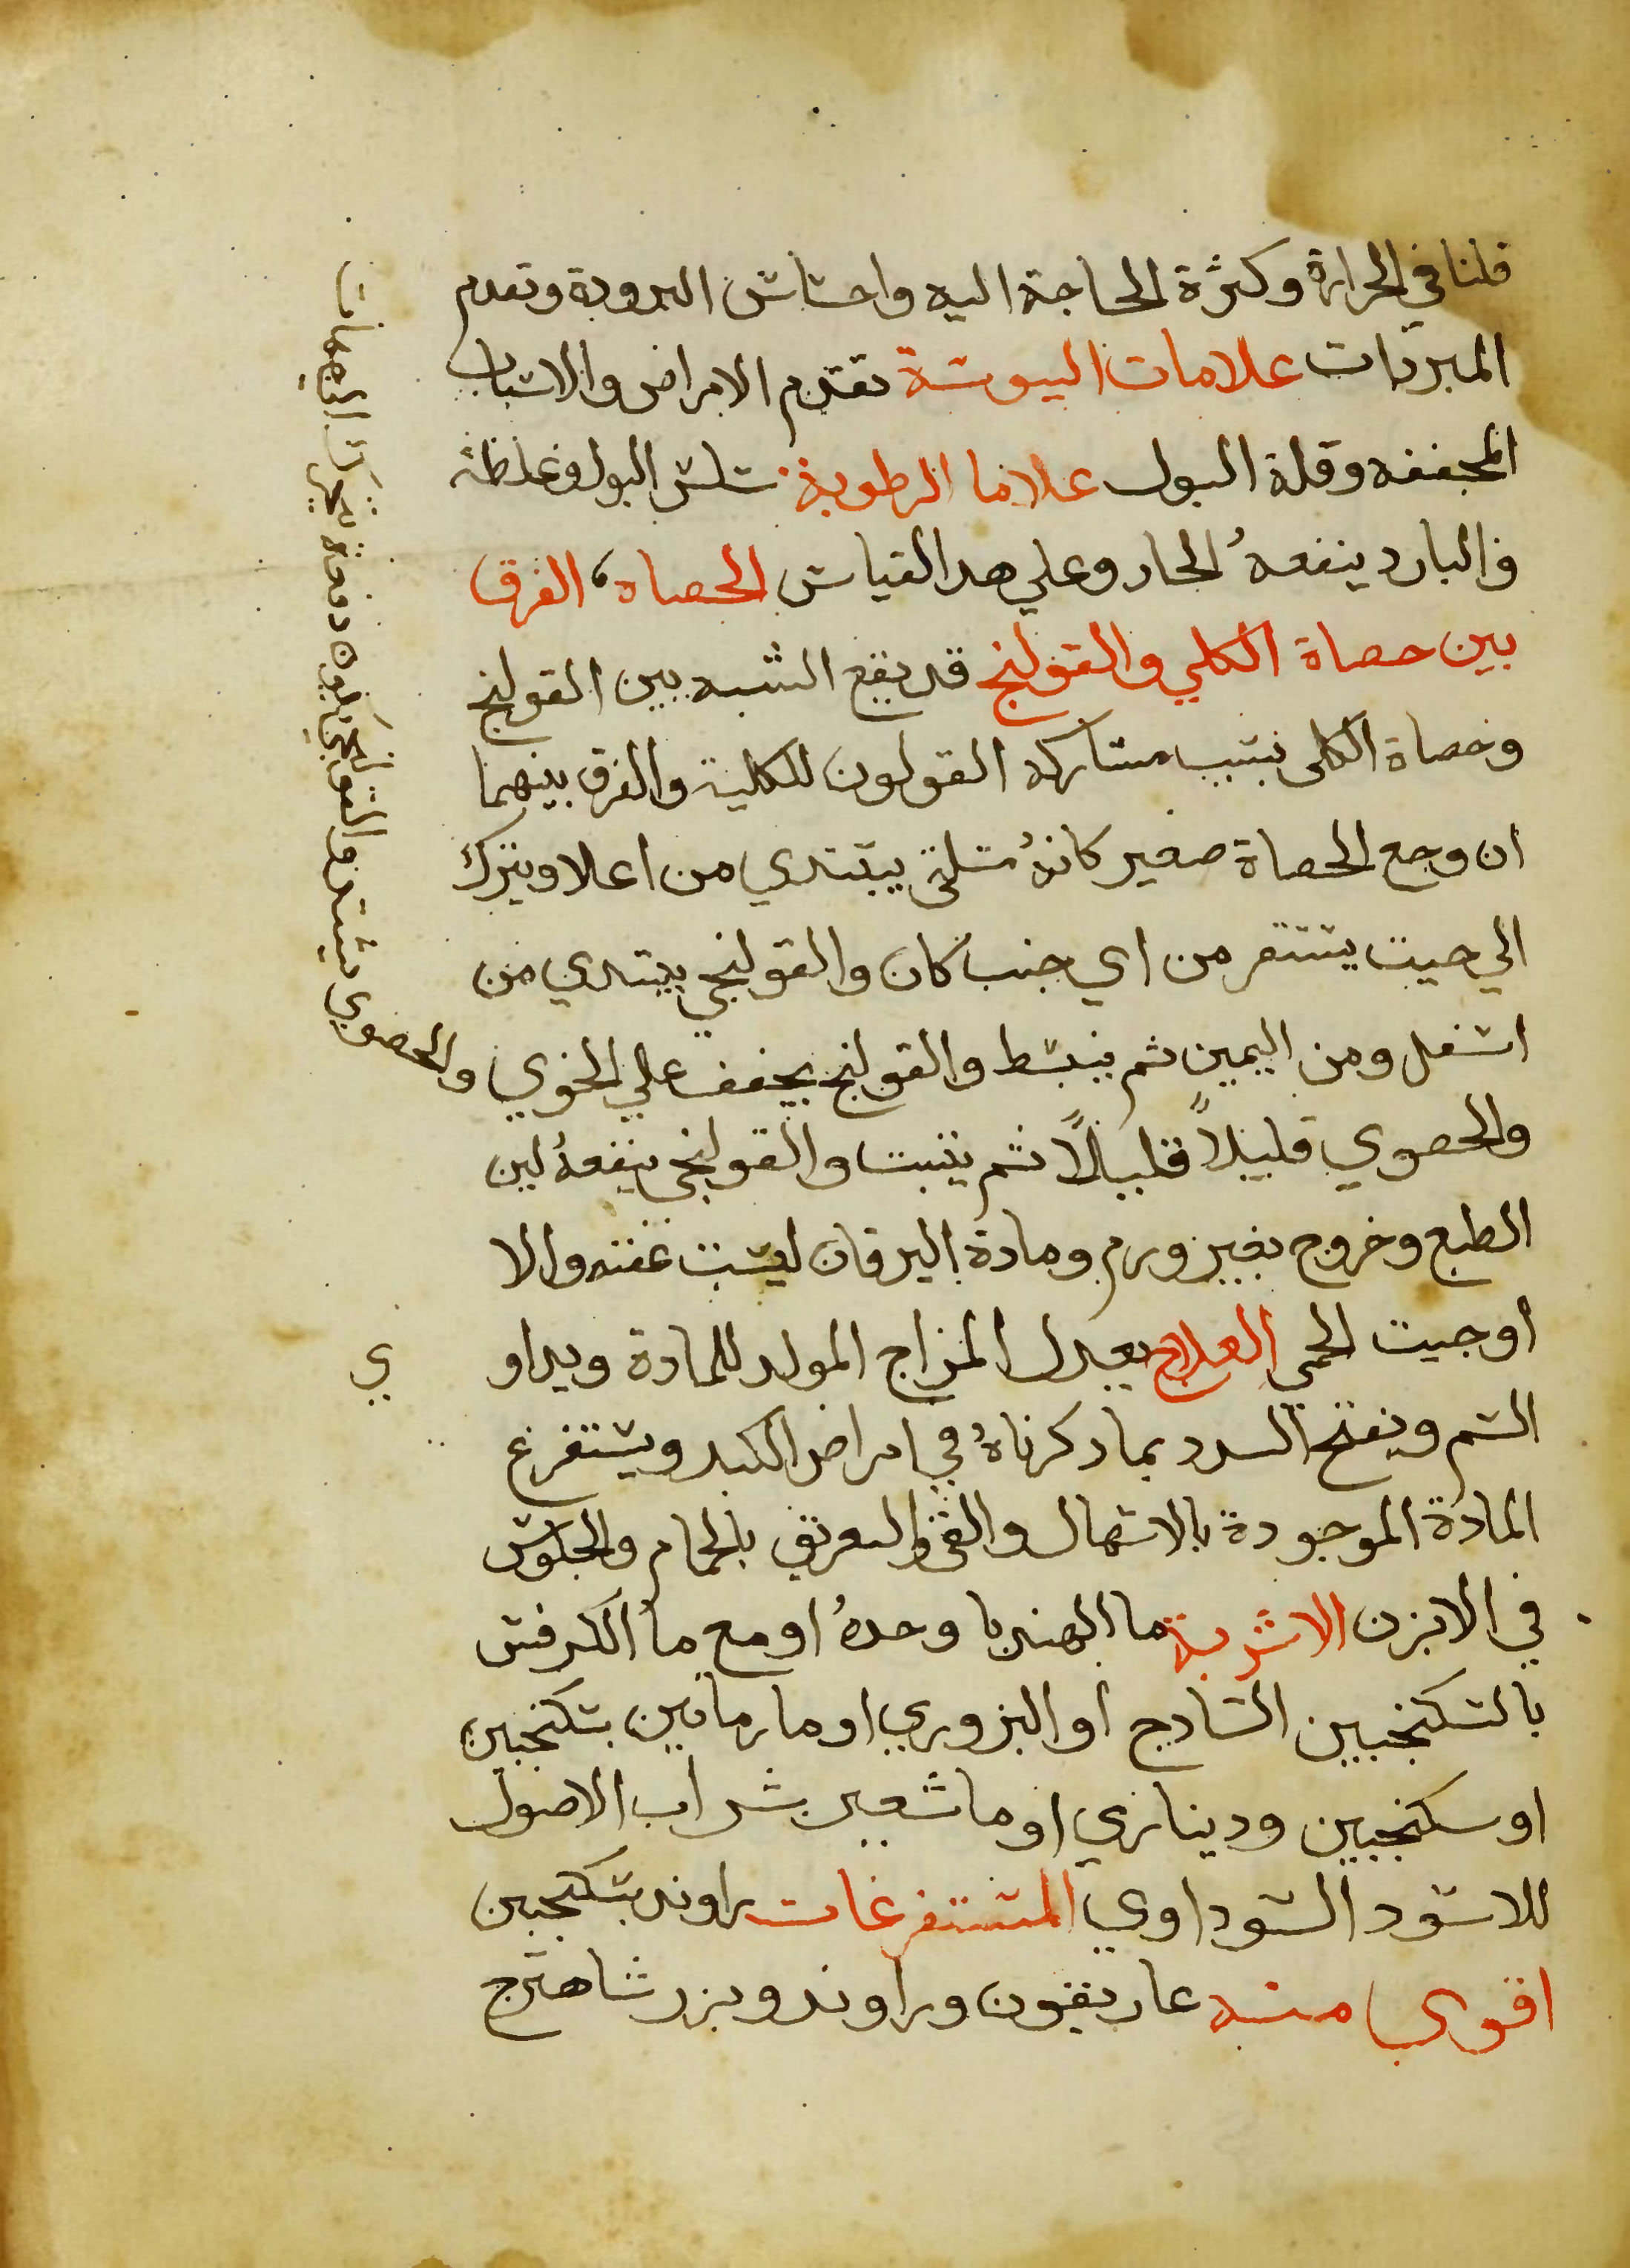 قلنا في الحرارة وكثرة الحاجة اليه واحساس البرودة وتقدم
المبردات علامات اليبوسة تقدم الامراض والاسباب
المجففه وقلة البول علاما الرطوبة سلس البول وغلظه
والبارد ينفعهُ الحار وعلي هدا القياس الحصاه، الفرق
بين حصاة الكلي والقولنج قد يقع الشبه بين القولنج
وحصاة الكلى بسبب مشاركه القولون للكلية والفرق بينهما
ان وجع الحصاة صغير كانهُ مسلة يبتدي من اعلا وينزل
الي حيت يستقر من اي جنب كان والقولنجي يبتدي من
اسفل ومن اليمين تم ينبسط والقولنج يخفف علي الخوي والحصوي يشتد والقولنجي يكون دفعة
والحصوي قليلاً قليلاً ثم يتبت والقولنجي ينفعهُ لين
الطبع وخروج بغير ورم ومادة اليرقان ليست عفنه والا
اوجبت الحمي العلاج يعدل المزاج المولد للمادة ويداوي
السم ويفتح السدد بما دكرناهُ في امراض الكبد ويستفرغ
المادة الموجودة بالاسهال والقي والتعريق بالحمام والجلوس
في الابزن الاشربة ما الهندبا وحدهُ او مع ما الكرفس
بالسكنجبين السادج او البزوري او ما رمانين بسكنجبين
او سكنجبين وديناري او ما شعير بشراب الاصول
للاسود السوداوي المستفرغات راوند بسكنجبين
اقوي منه غاريقون وراوند وبزر شاهترج